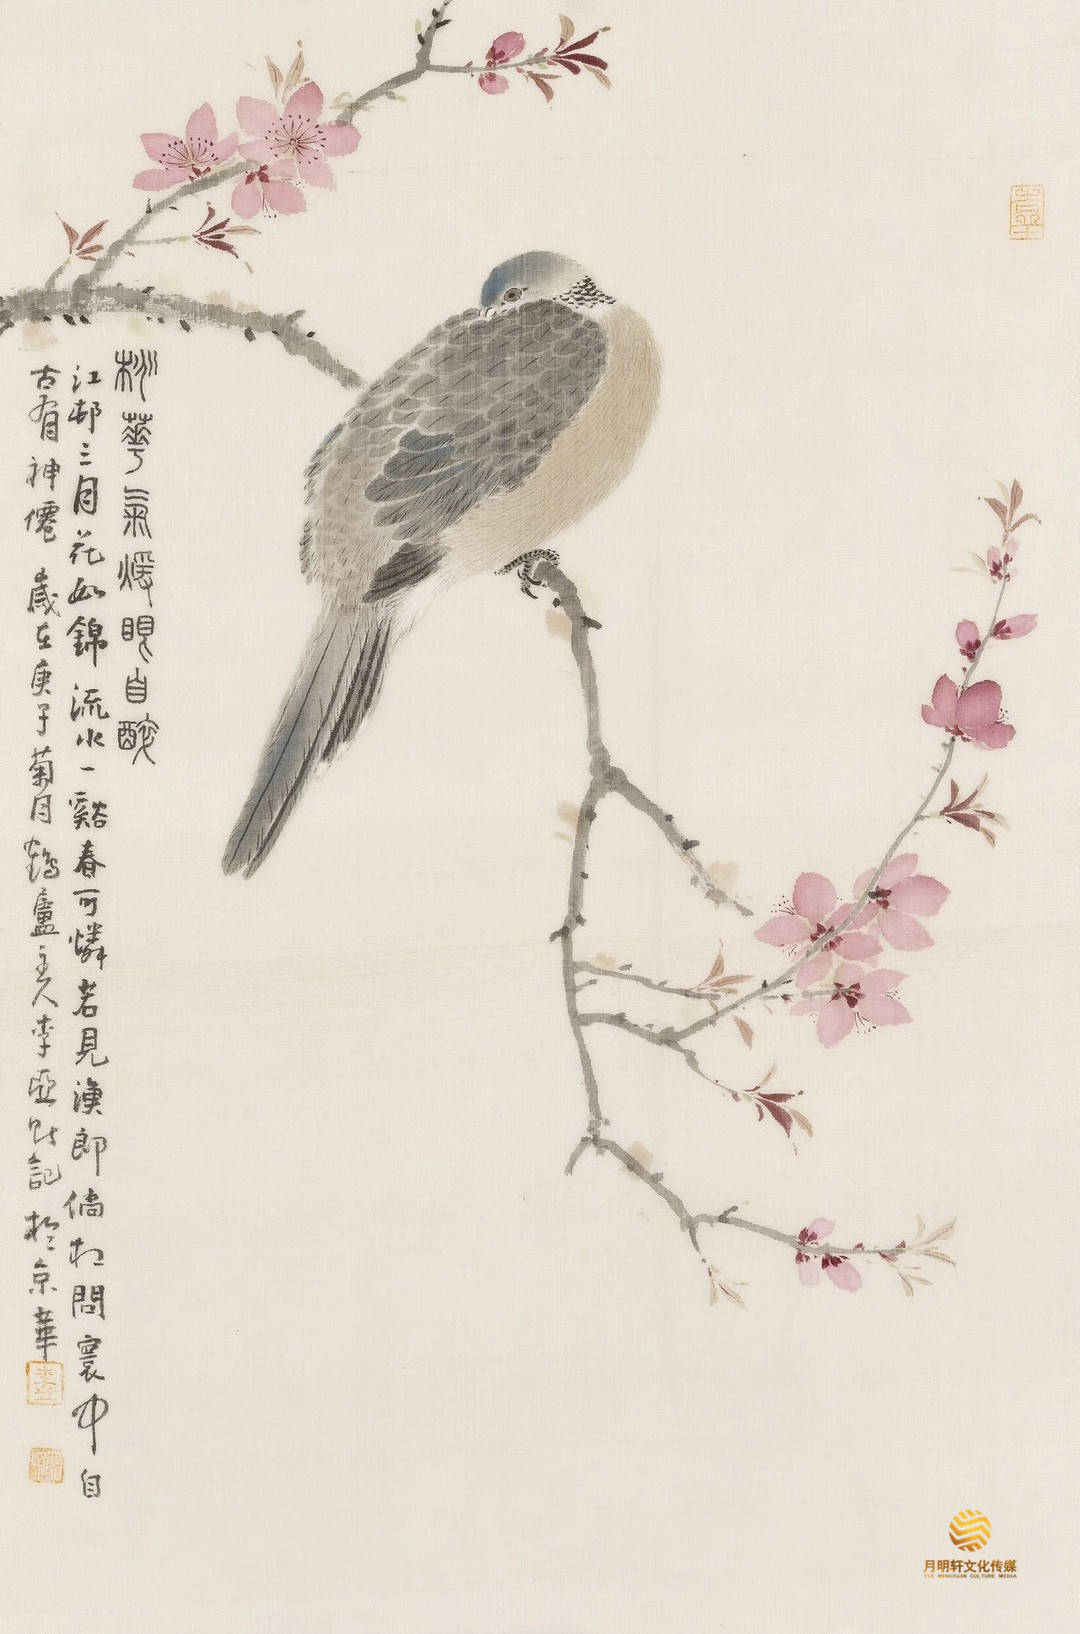 桃華氣煖眼自醉
江邨三月花如錦流水一谿春可憐若見漁郎倘相問寰中自
古有神僊 歲在庚子菊月鶴廬主人李亞 記於京華
月明轩文化传媒
YUE MINGXUAN CULTURE MEDIA